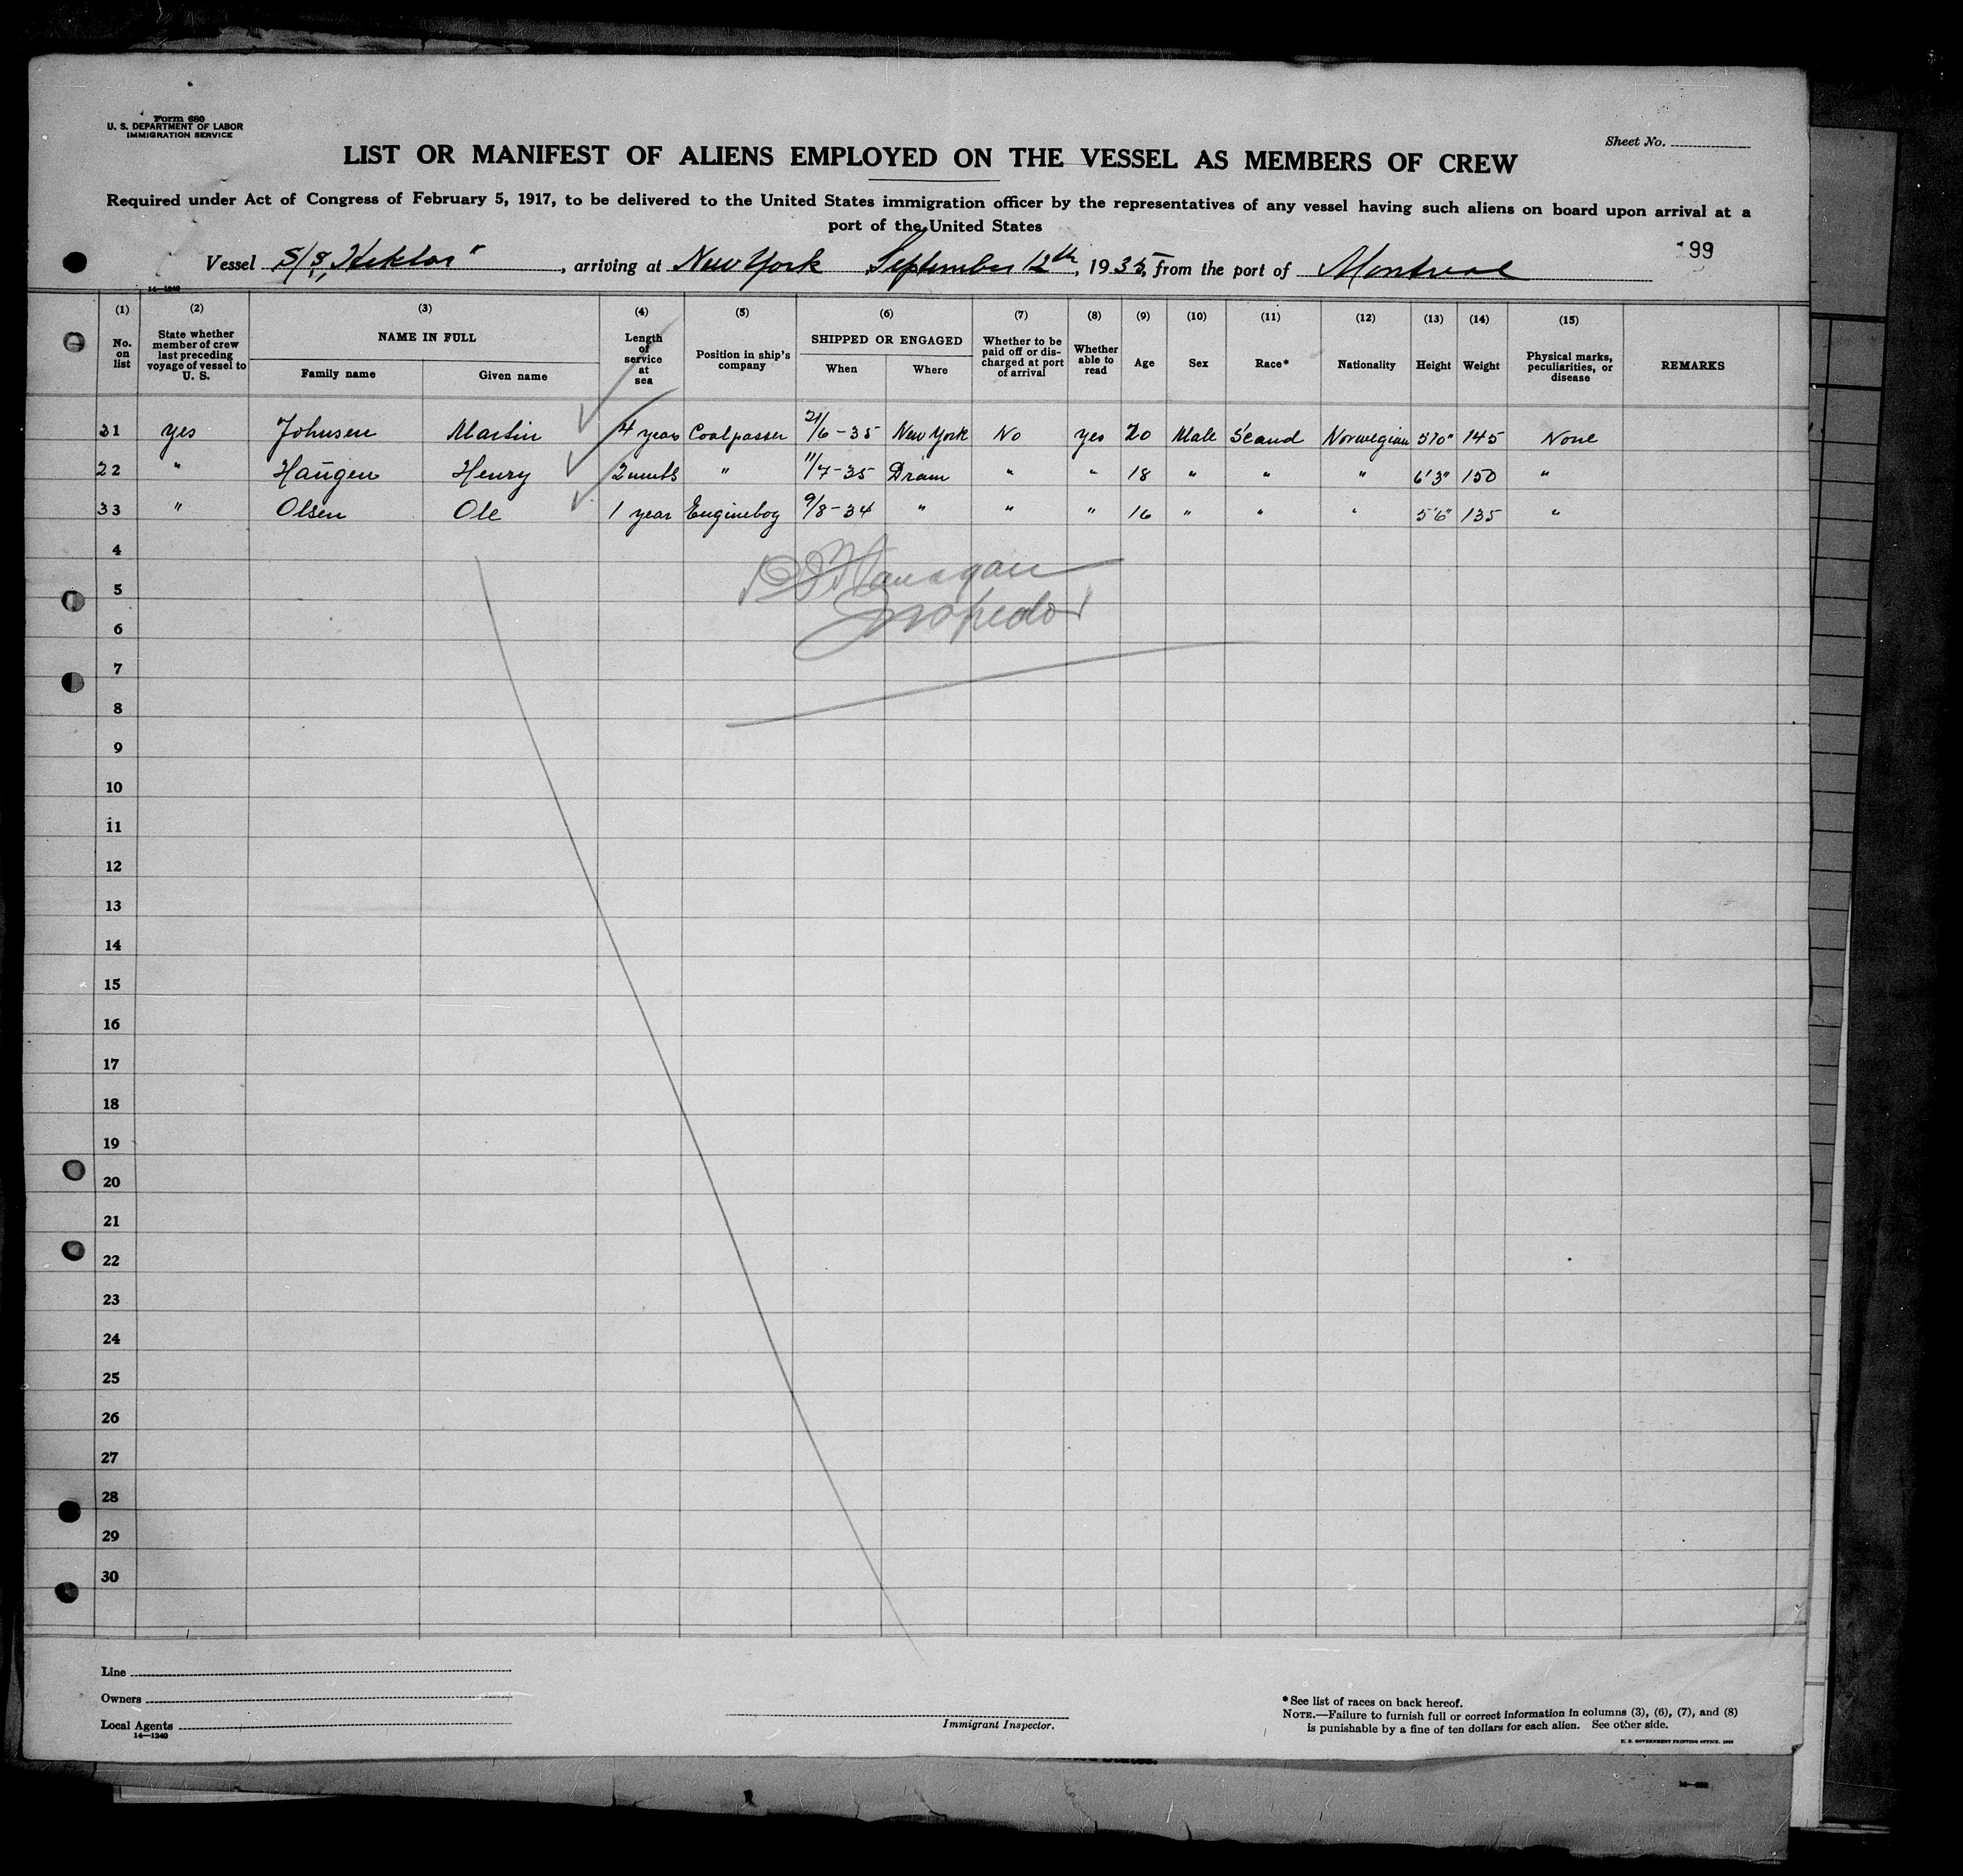 Form 680
U. S. DEPARTMENT OF LABOR
IMMIGRATION SERVICE
Sheet No.
LIST OR MANIFEST OF ALIENS EMPLOYED ON THE VESSEL AS MEMBERS OF CREW
Required under Act of Congress of February 5, 1917, to be delivered to the United States immigration officer by the representatives of any vessel having such aliens on board upon arrival at a
port of the United States
199
Vessel S/S „Hektor", arriving at New York September 12th, 1935, from the port of Montreal
14—1240
(1) (2) (3) (4) (5) (6) (7) (8) (9) (10) (11) (12) (13) (14) (15)
No. on list State whether member of crew last preceding voyage of vessel to U. S. NAME IN FULL Family name Given name Length of service at sea Position in ship's company SHIPPED OR ENGAGED When Where Whether to be paid off or discharged at port of arrival Whether able to read Age Sex Race* Nationality Height Weight Physical marks, peculiarities, or disease REMARKS
31 yes Johnsen Martin 4 years Coalpasser 21/6-35 New York No yes 20 Male Scand Norwegian 5'10" 145 None
22 " Haugen Henry 2 mnts " 11/7-35 Dram " " 18 " " " 6'3" 150 "
33 " Olsen Ole 1 year Engineboy 9/8-34 " " " 16 " " " 5'6" 135 "
4
Flanagan
5
Inspector
6
7
8
9
10
11
12
13
14
15
16
17
18
19
20
21
22
23
24
25
26
27
28
29
30
Line
Owners
Local Agents
14—1240
Immigrant Inspector.
*See list of races on back hereof.
NOTE.—Failure to furnish full or correct information in columns (3), (6), (7), and (8)
is punishable by a fine of ten dollars for each alien. See other side.